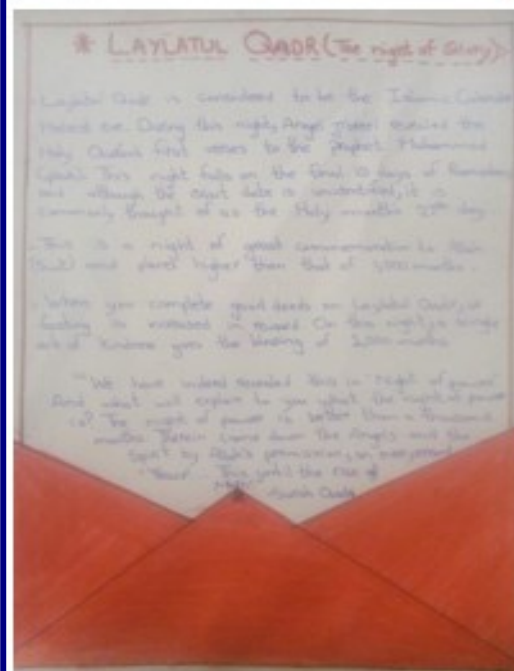 * LAYLATUL QADR (The night of Glory)
Laylatul Qadr is considered to be the Islamic Calendar
Holiest eve. During this night, Angel revealed the
Holy Qurans first verses to the prophet Muhammad
This night falls on the final 10 days of Ramadan
and although the exact date is unidentified, it is
commonly thought of as the Holy months 27th day.
This is a night of great commemoration to Allah
(Swt) and placed higher than that of 1,000 months.
When you complete good deeds on Laylatul Qadr,
is increased in reward On this night, a single
act of kindness gives the blessing of 1,000 months
"We have indeed revealed this in "night of power"
And what will explain to you what the night of power
is? The night of power is better than a thousand
months. Therein come down the Angels and the
Spirit by Allah's permission, on every errand
This until the rise of
Surah Qadr